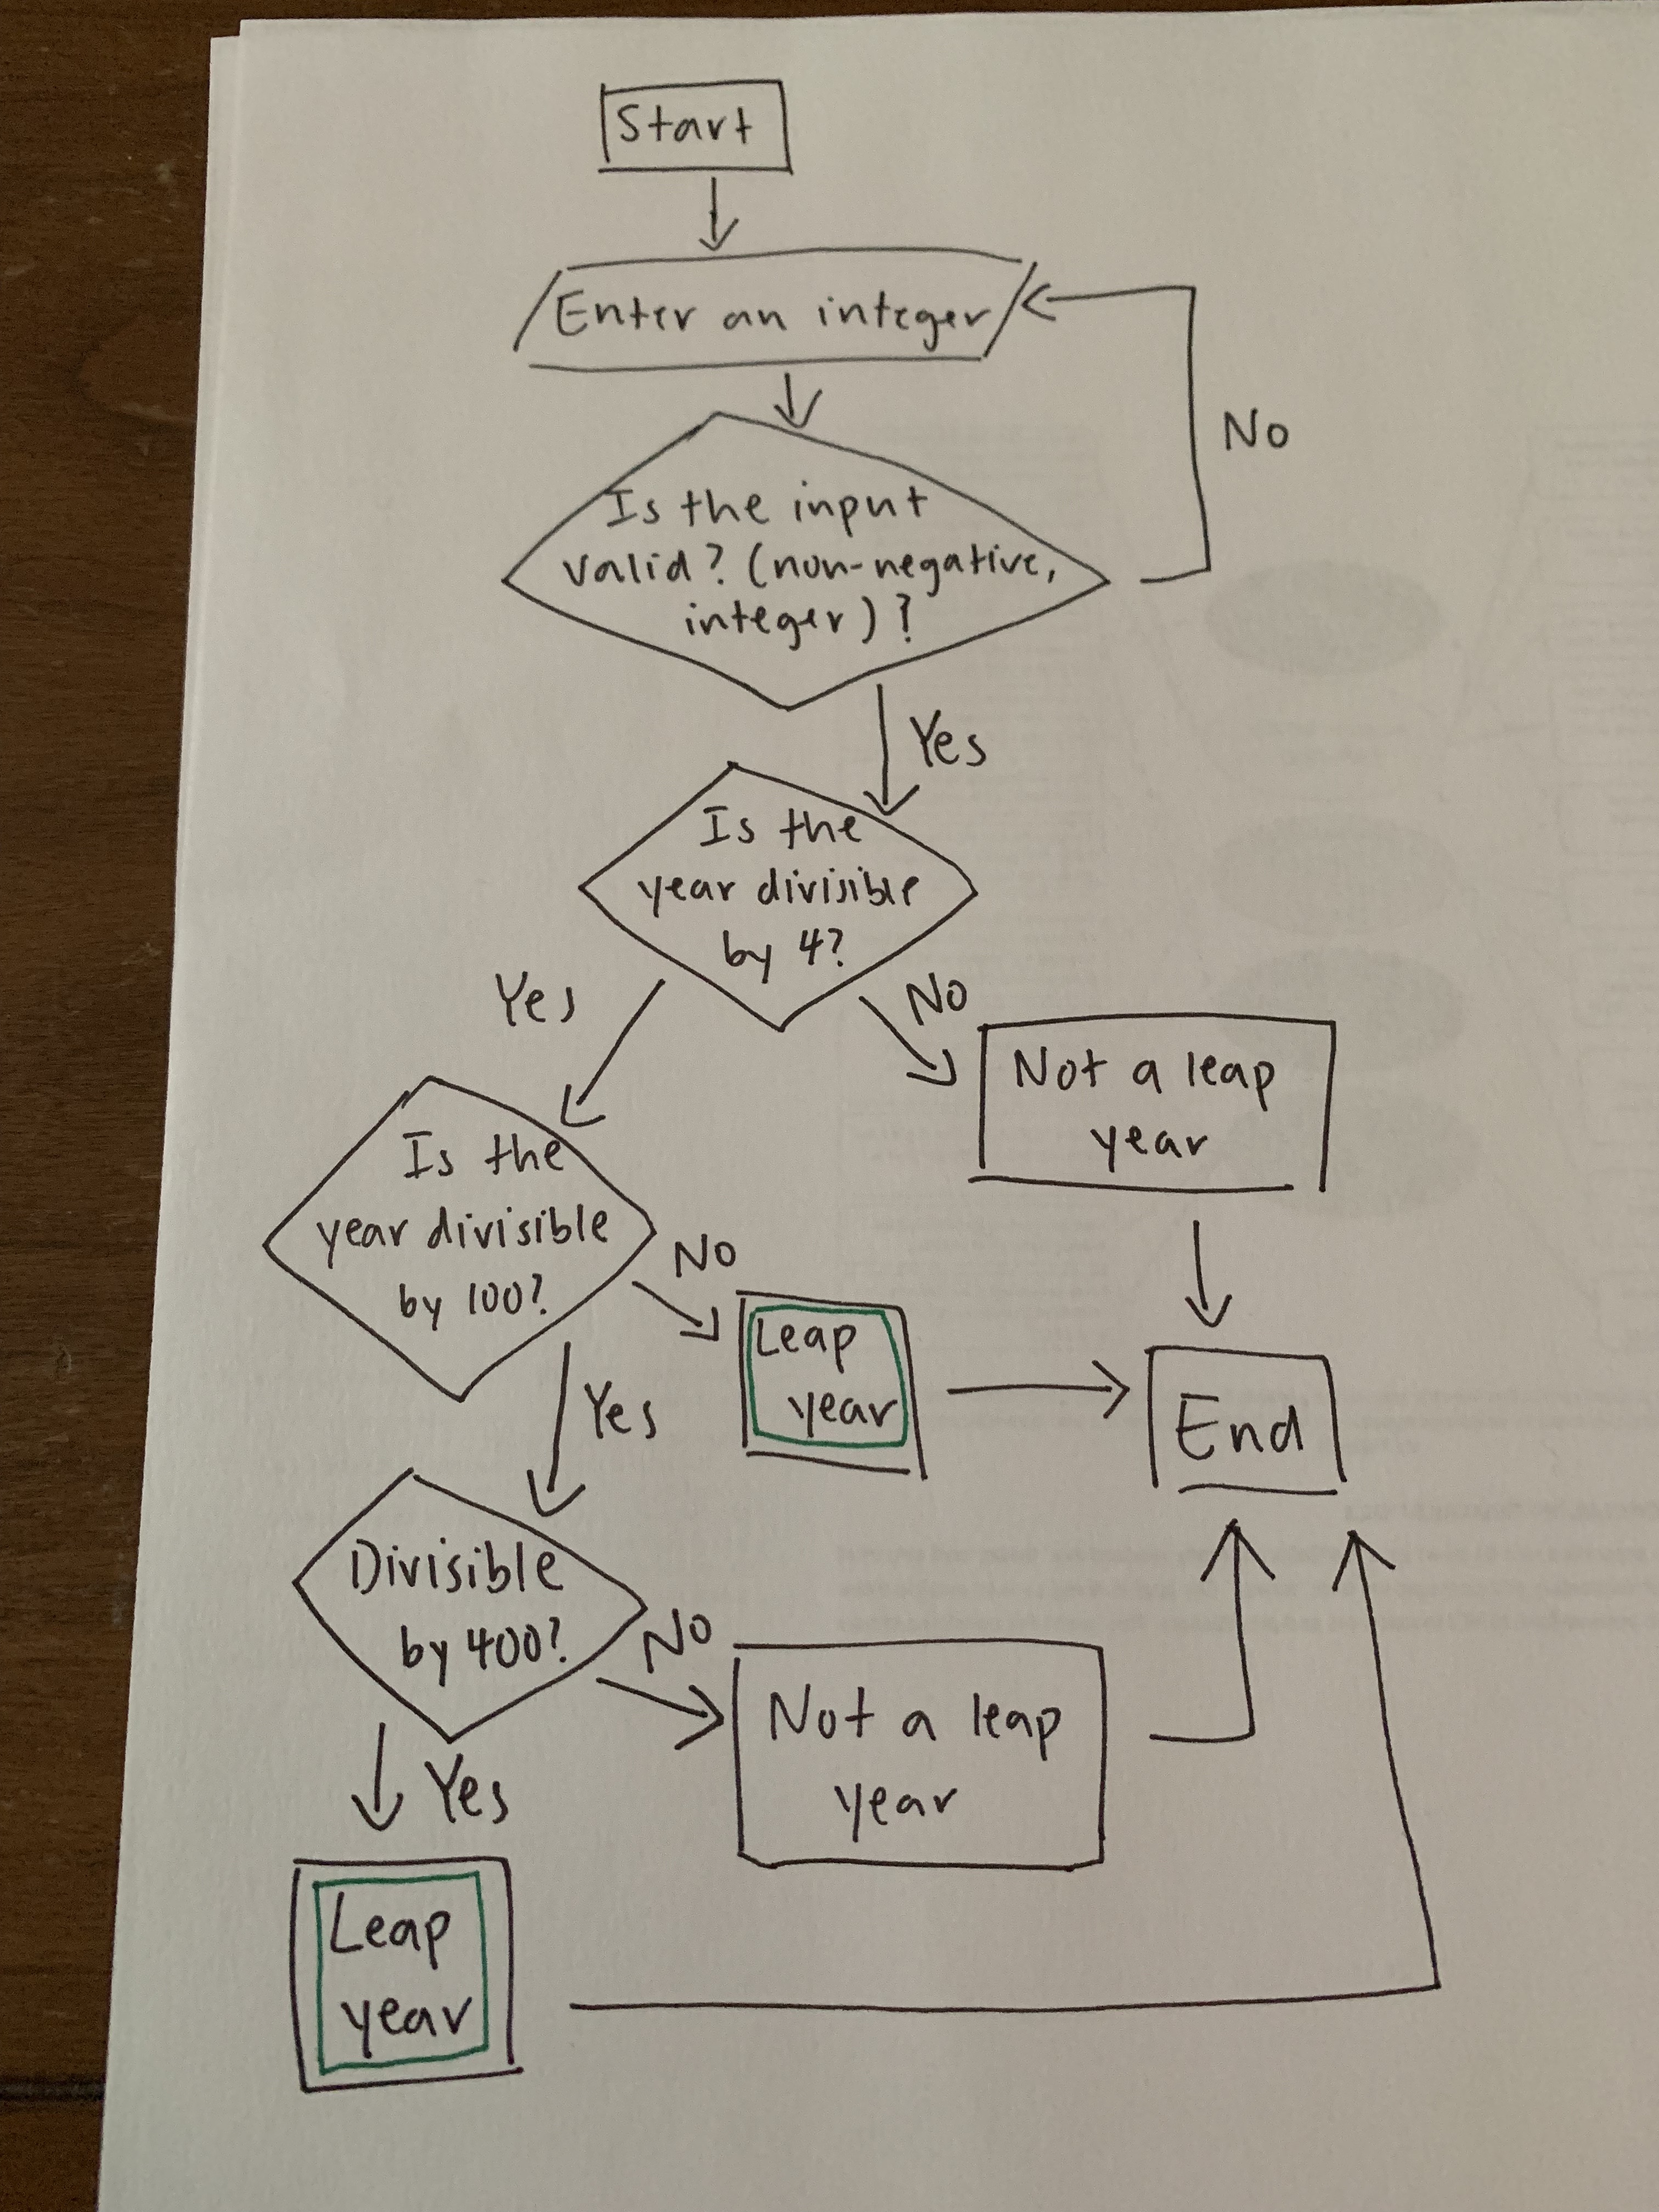 Start
Enter an integer
No
Is the input
valid? (non-negative,
integer)?
Yes
Is the
year divisible
by 4?
Yes
No
Not a leap
year
Is the
year divisible
by 100?
No
Leap
year
Yes
End
Divisible
by 400?
No
Not a leap
year
Yes
Leap
year